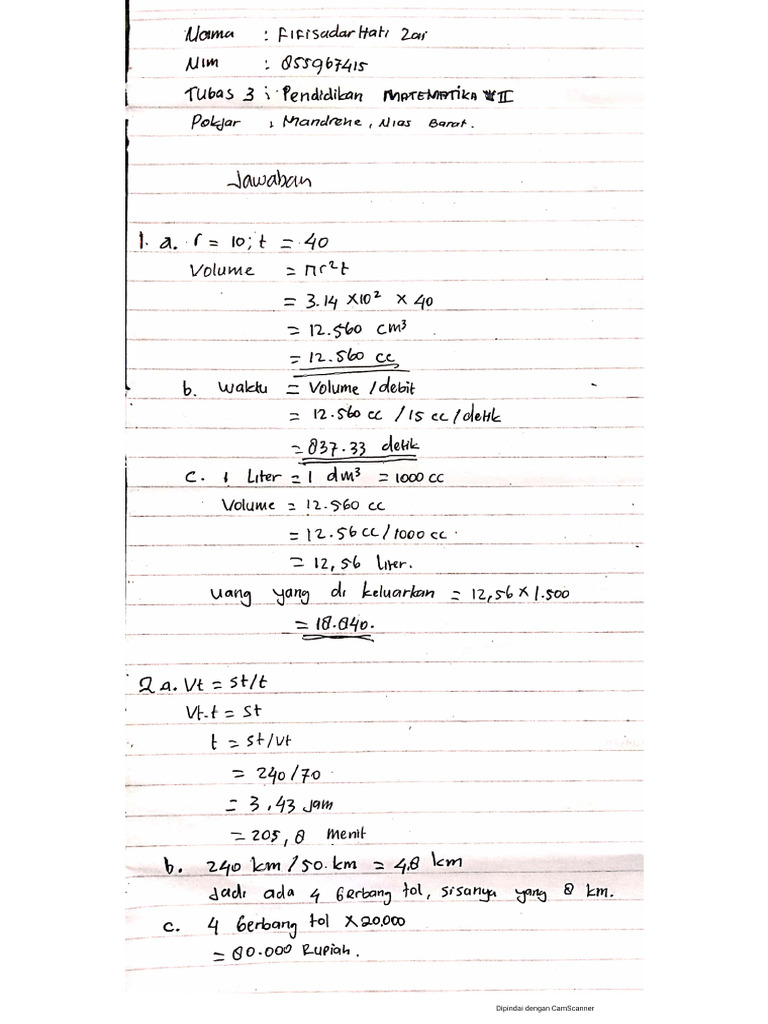 Nama : Fifisadar Hati Zai
Nim : 855967415
Tugas 3 : Pendidikan MATEMATIKA II
Pokjar : Mandrehe, Nias Barat.
Jawaban
1. a. r = 10; t = 40
Volume = πr²t
= 3.14 × 10² × 40
= 12.560 cm³
= 12.560 cc
b. Waktu = Volume / debit
= 12.560 cc / 15 cc / detik
= 837.33 detik
c. 1 Liter = 1 dm³ = 1000 cc
Volume = 12.560 cc
= 12.56 cc / 1000 cc
= 12,56 liter.
Uang yang di keluarkan = 12,56 × 1.500
= 18.840.
2 a. Vt = st/t
Vt.t = st
t = st/vt
= 240 / 70
= 3,43 jam
= 205,8 menit
b. 240 km / 50. km = 4,8 km
Jadi ada 4 Gerbang tol, sisanya yang 8 km.
c. 4 Gerbang tol × 20,000
= 80.000 Rupiah.
Dipindai dengan CamScanner